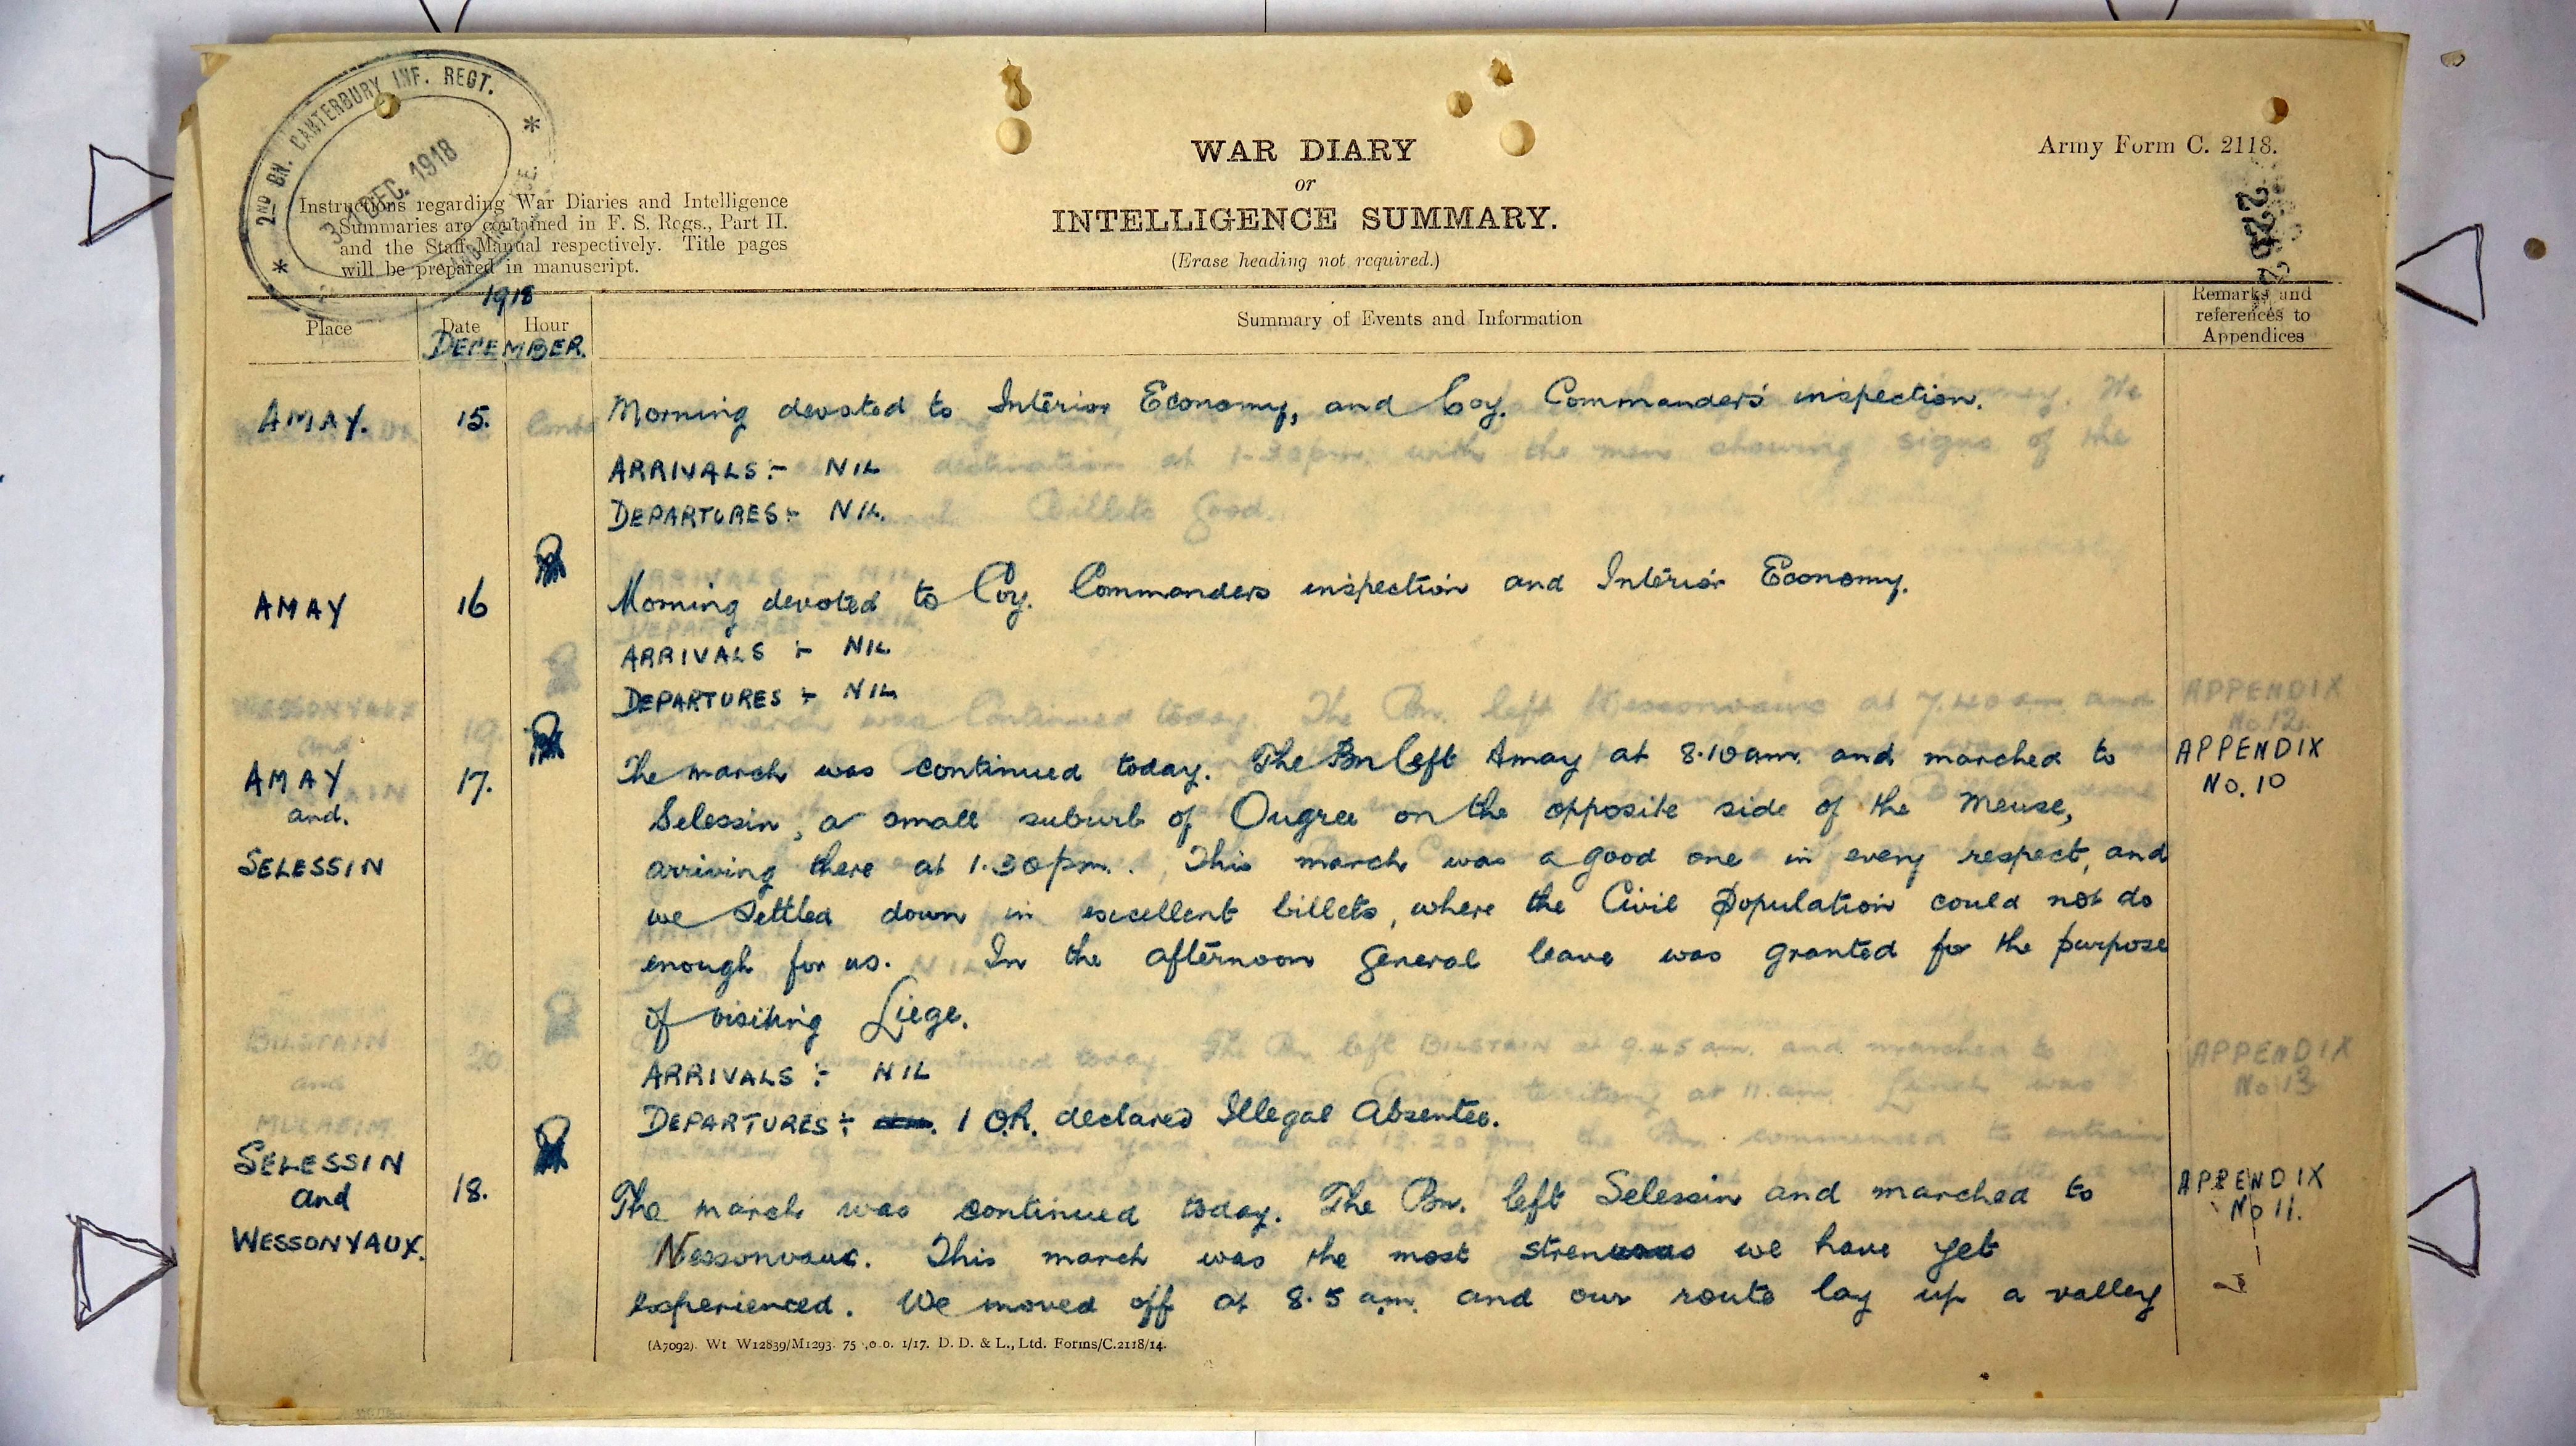 2ND BN. CANTERBURY INF. REGT.
31 DEC. 1918
WAR DIARY
or
INTELLIGENCE SUMMARY.
(Erase heading not required.)
Army Form C. 2118.
Instructions regarding War Diaries and Intelligence
Summaries are contained in F. S. Regs., Part II.
and the Staff Manual respectively. Title pages
will be prepared in manuscript.
1918
Place
Date
Hour
DECEMBER.
Summary of Events and Information
Remarks and
references to
Appendices
AMAY. 15. Morning devoted to Interior Economy, and Coy. Commander's inspection.
ARRIVALS :- NIL
DEPARTURES :- NIL.
AMAY 16 Morning devoted to Coy. Commanders inspection and Interior Economy.
ARRIVALS :- NIL
DEPARTURES :- NIL
AMAY 17. The march was continued today. The Bn left Amay at 8.10 am. and marched to APPENDIX
and. Selessin, a small suburb of Ougree on the opposite side of the Meuse, No. 10
SELESSIN arriving there at 1.30 pm. This march was a good one in every respect, and
we settled down in excellent billets, where the Civil Population could not do
enough for us. In the afternoon general leave was granted for the purpose
of visiting Liege.
ARRIVALS :- NIL
DEPARTURES :- 1 O.R. declared Illegal Absentee.
SELESSIN
and 18. The march was continued today. The Bn. left Selessin and marched to APPENDIX
WESSONVAUX. Nessonvaux. This march was the most strenuous we have yet No 11.
experienced. We moved off at 8.5 am. and our route lay up a valley
(A7092). Wt W12839/M1293. 75 ,0 0. 1/17. D. D. & L., Ltd. Forms/C.2118/14.